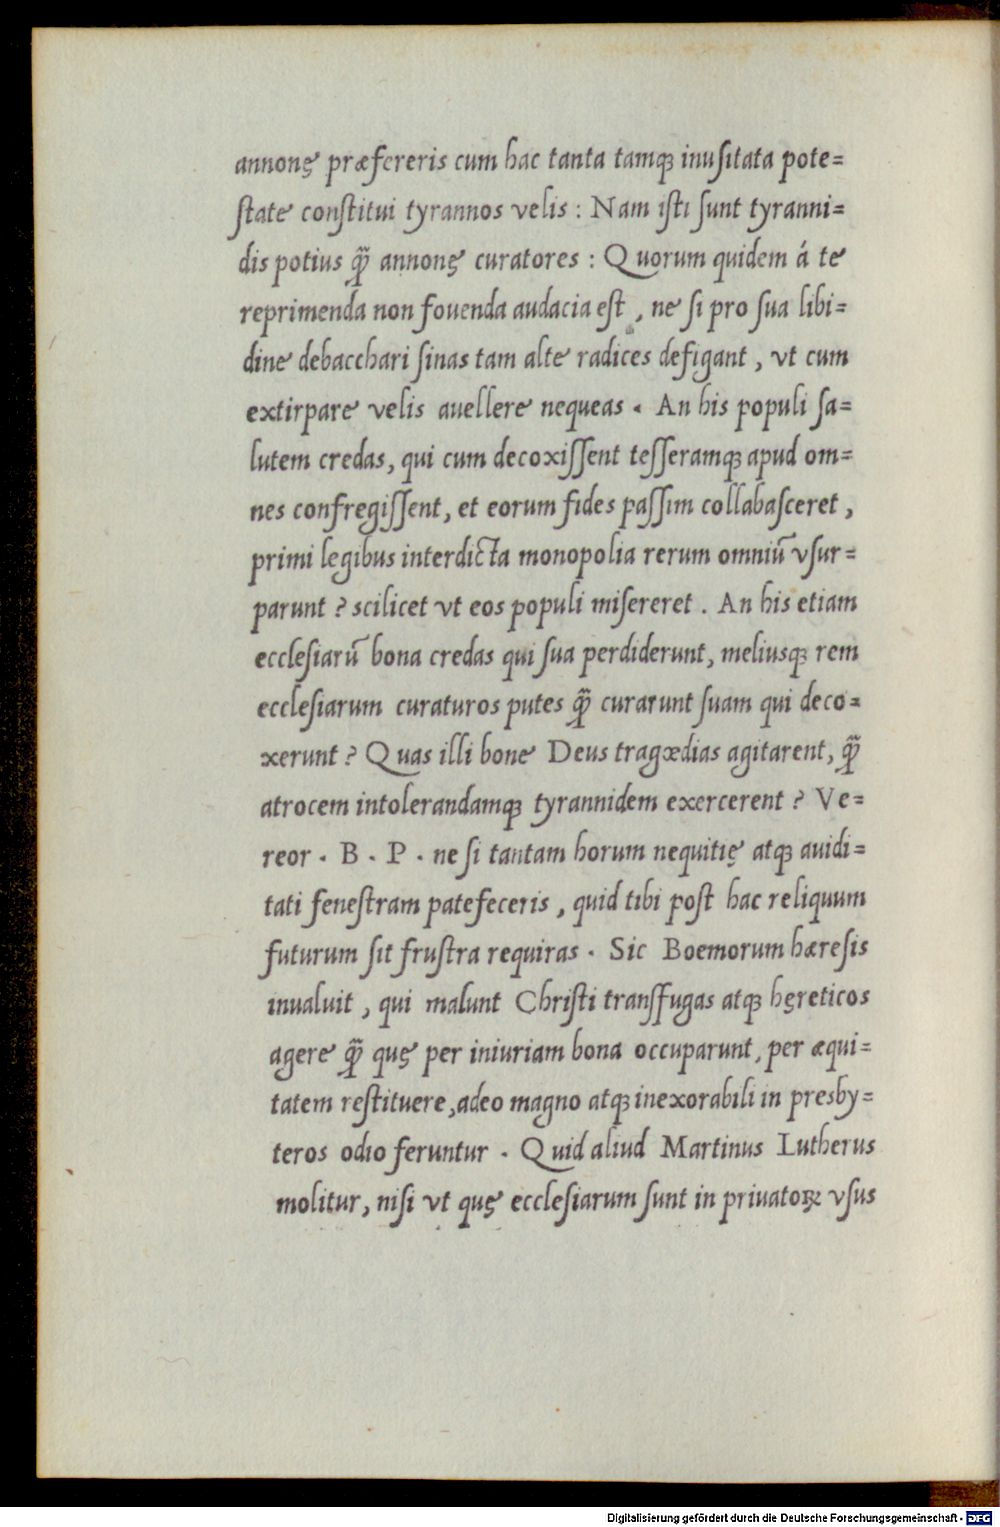 annonę præfereris cum hac tanta tamqꝫ inuſitata pote=
ſtate conſtitui tyrannos velis : Nam iſti ſunt tyranni=
dis potius q̃ annonę curatores : Quorum quidem á te
reprimenda non fouenda audacia eſt , ne ſi pro ſua libi=
dine debacchari ſinas tam alte radices defigant , vt cum
extirpare velis auellere nequeas . An his populi ſa=
lutem credas, qui cum decoxiſſent teſſeramqꝫ apud om=
nes confregiſſent, et eorum fides paſſim collabaſceret ,
primi legibus interdicta monopolia rerum omniũ vſur=
parunt ? scilicet vt eos populi miſereret . An his etiam
eccleſiarũ bona credas qui ſua perdiderunt, meliusqꝫ rem
eccleſiarum curaturos putes q̃ curarunt ſuam qui deco=
xerunt ? Quas illi bone Deus tragœdias agitarent, q̃
atrocem intolerandamqꝫ tyrannidem exercerent ? Ve=
reor . B . P . ne ſi tantam horum nequitię atqꝫ auidi=
tati feneſtram patefeceris , quid tibi poſt hac reliquum
futurum ſit fruſtra requiras . Sic Boemorum hæreſis
inualuit , qui malunt Chriſti tranſfugas atqꝫ hęreticos
agere q̃ quę per iniuriam bona occuparunt, per æqui=
tatem reſtituere, adeo magno atqꝫ inexorabili in presby=
teros odio feruntur . Quid aliud Martinus Lutherus
molitur, niſi vt quę eccleſiarum ſunt in priuatoꝝ vſus
Digitalisierung gefördert durch die Deutsche Forschungsgemeinschaft - DFG